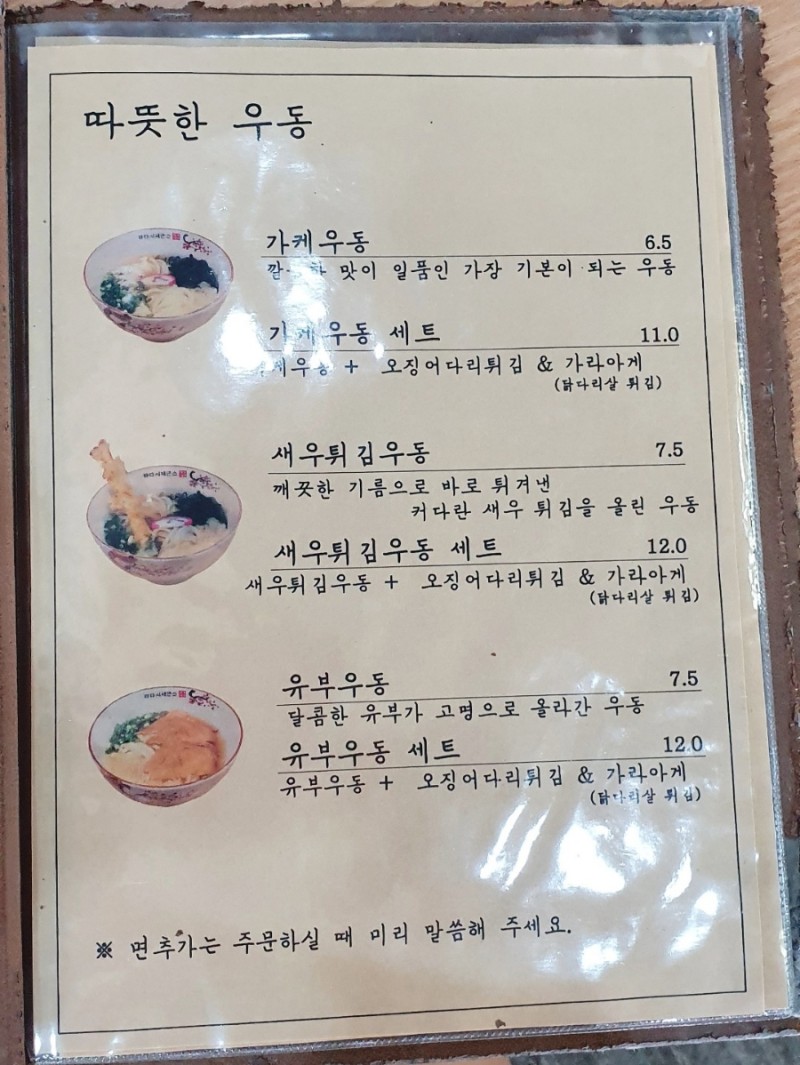 따뜻한 우동
가케우동 6.5
맛이 일품인 가장 기본이 되는 우동
가케우동 세트 11.0
+ 오징어다리튀김 & 가라아게
(닭다리살 튀김)
새우튀김우동 7.5
깨끗한 기름으로 바로 튀겨낸
커다란 새우 튀김을 올린 우동
새우튀김우동 세트 12.0
새우튀김우동 + 오징어다리튀김 & 가라아게
(닭다리살 튀김)
유부우동 7.5
달콤한 유부가 고명으로 올라간 우동
유부우동 세트 12.0
유부우동 + 오징어다리튀김 & 가라아게
(닭다리살 튀김)
※ 면추가는 주문하실 때 미리 말씀해 주세요.